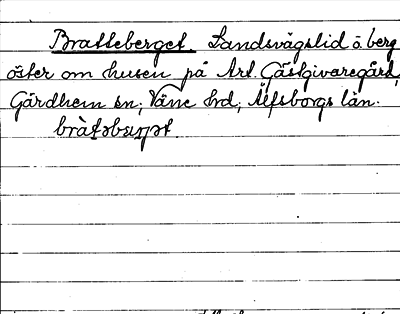 Bratteberget. Landsvägslid o. berg
öster om husen på Art. Gästgivaregård,
Gärdhem sn, Väne hd, Älfsborgs län.